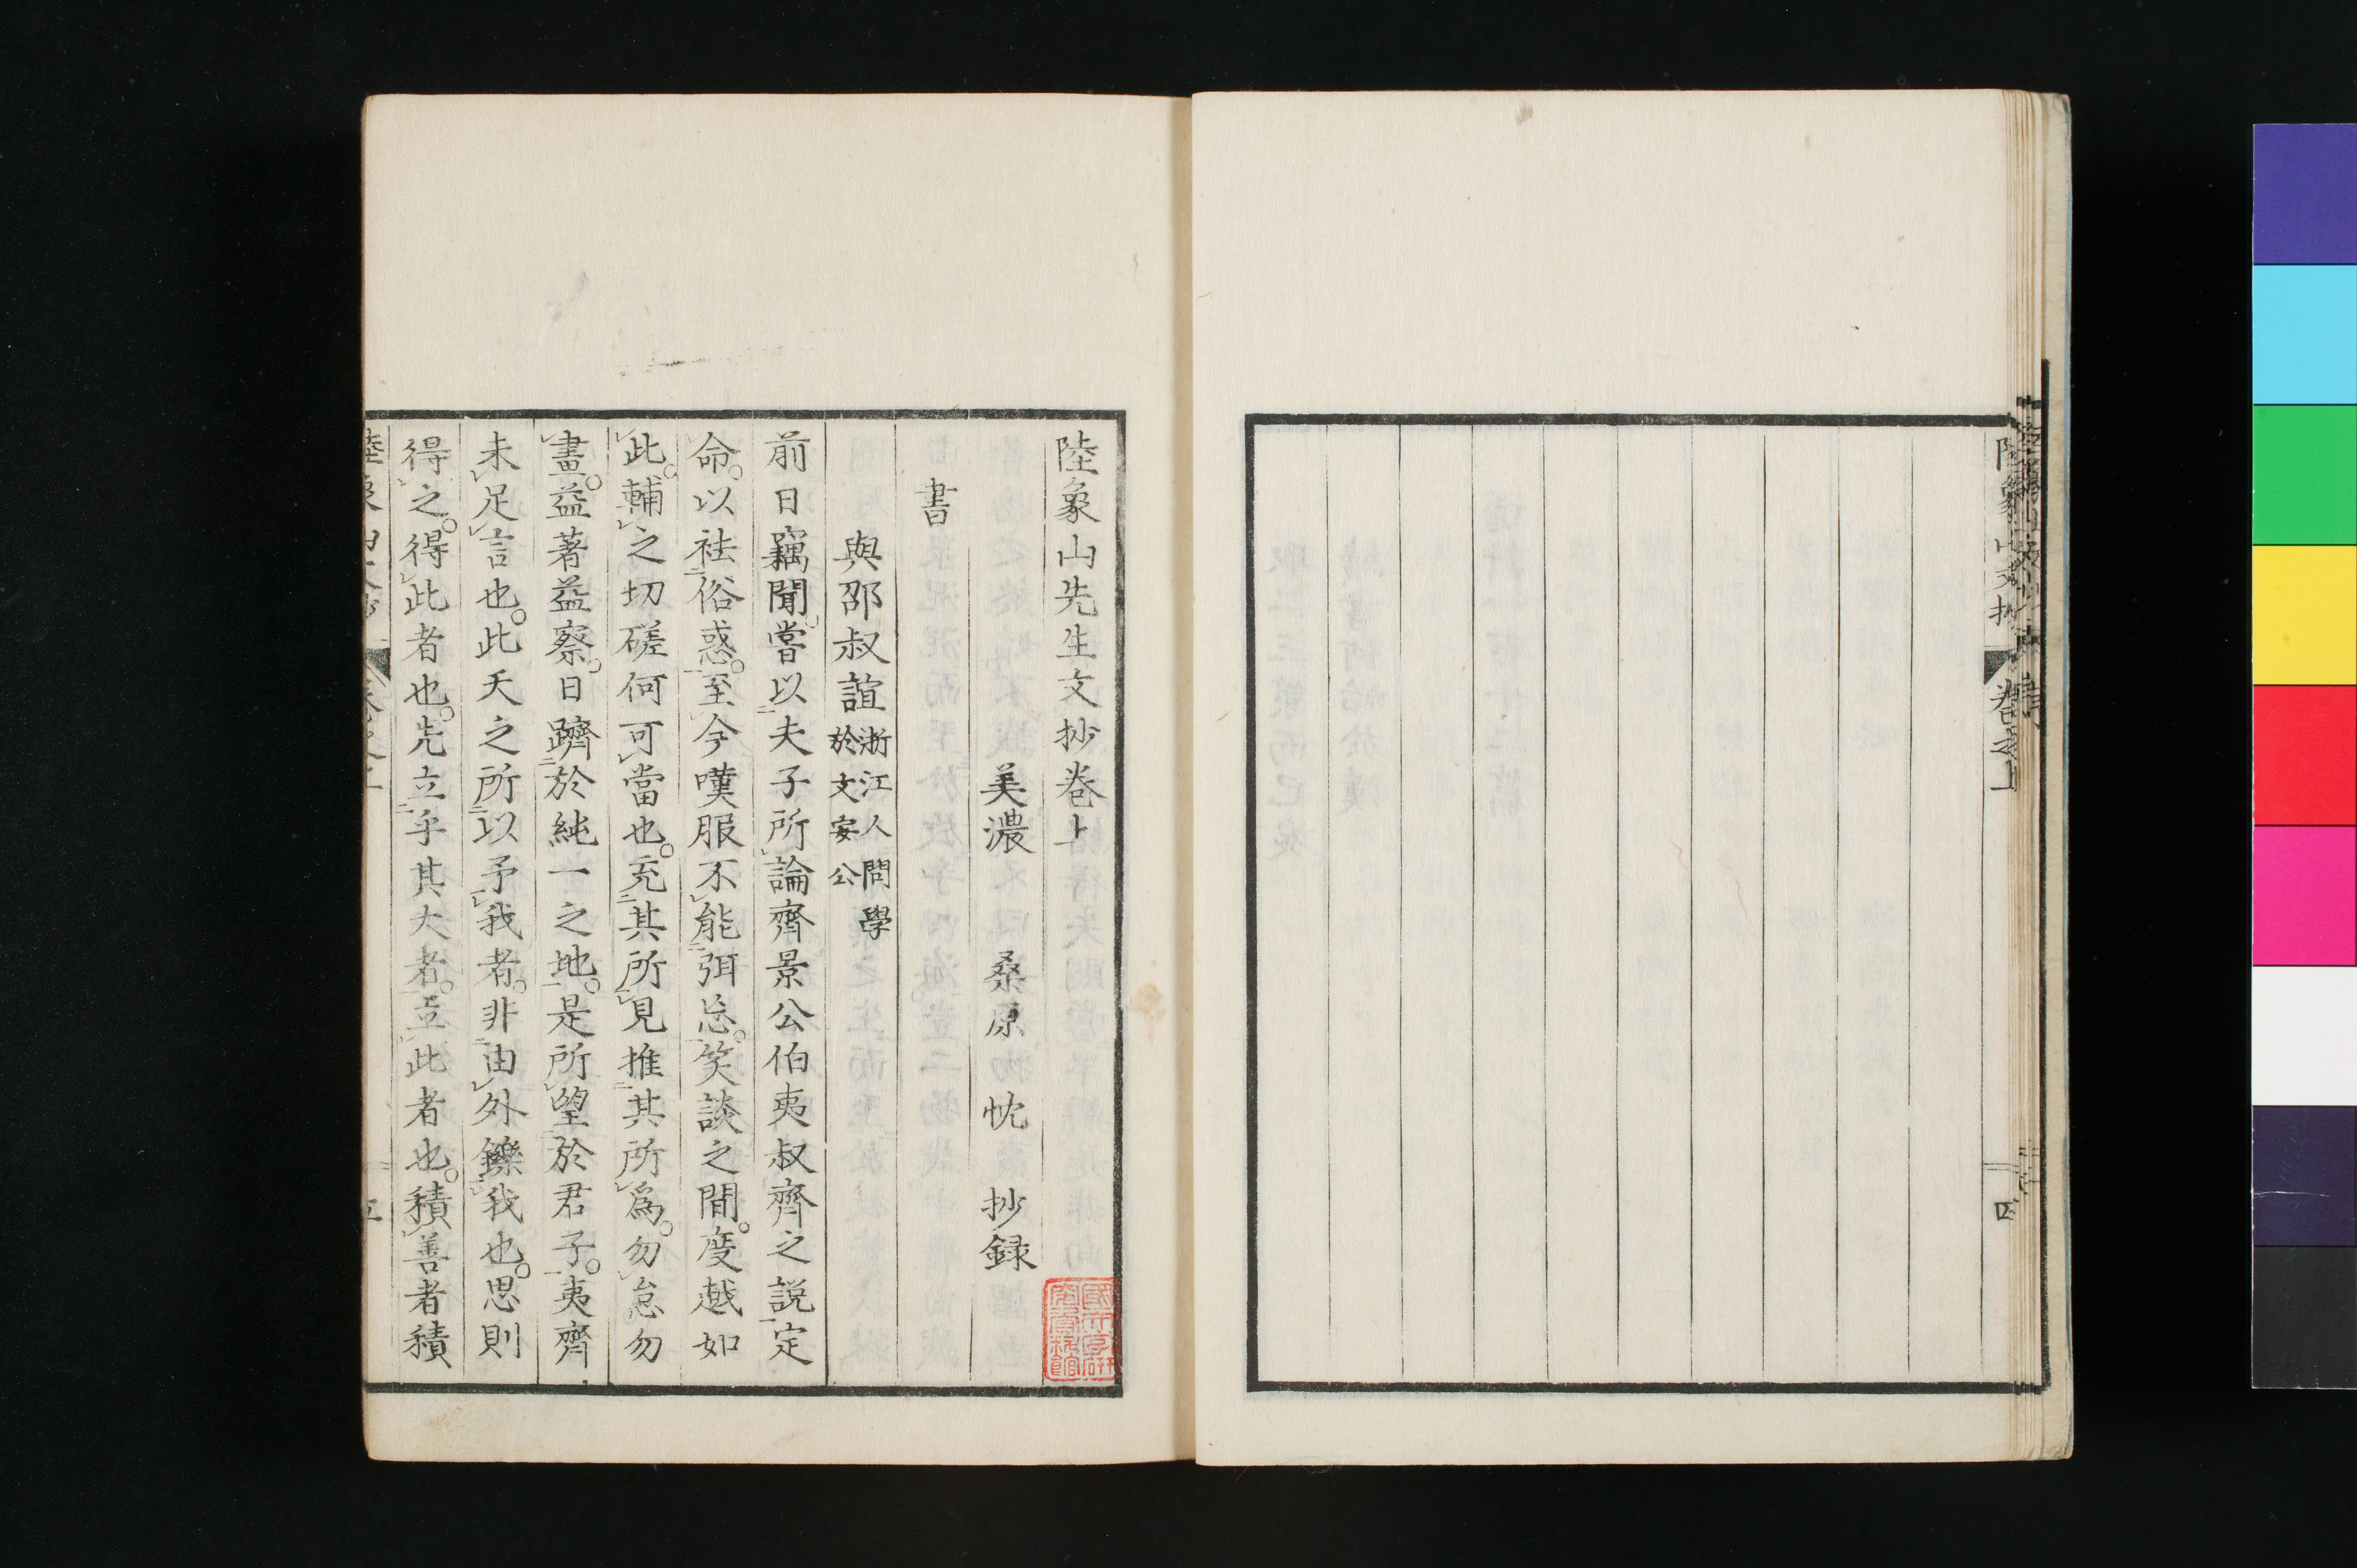 陸象山先生文抄卷上
美濃 桑原忱 抄録
書
與邵叔誼 浙江人問學
於文安公
前日竊聞嘗以夫子所論齊景公伯夷叔齊之説定
命以祛俗惑至今嘆服不能弭忘笑談之間度越如
此輔之切磋何可當也充其所見推其所爲勿怠勿
畫益著益察日躋於純一之地是所望於君子夷齊
未足言也此天之所以予我者非由外鑠我也思則
得之得此者也先立乎其大者立此者也積善者積